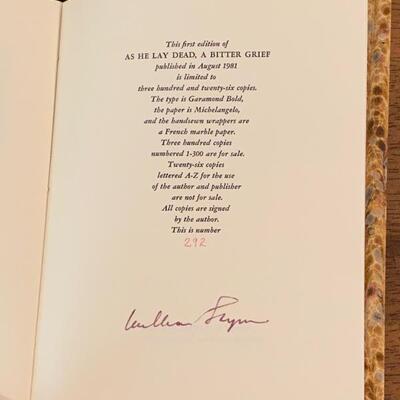 This first edition of
AS HE LAY DEAD, A BITTER GRIEF
published in August 1981
is limited to
three hundred and twenty-six copies.
The type is Garamond Bold,
the paper is Michelangelo,
and the handsewn wrappers are
a French marble paper.
Three hundred copies
numbered 1-300 are for sale.
Twenty-six copies
lettered A-Z for the use
of the author and publisher
are not for sale.
All copies are signed
by the author.
This is number
292
William Styron